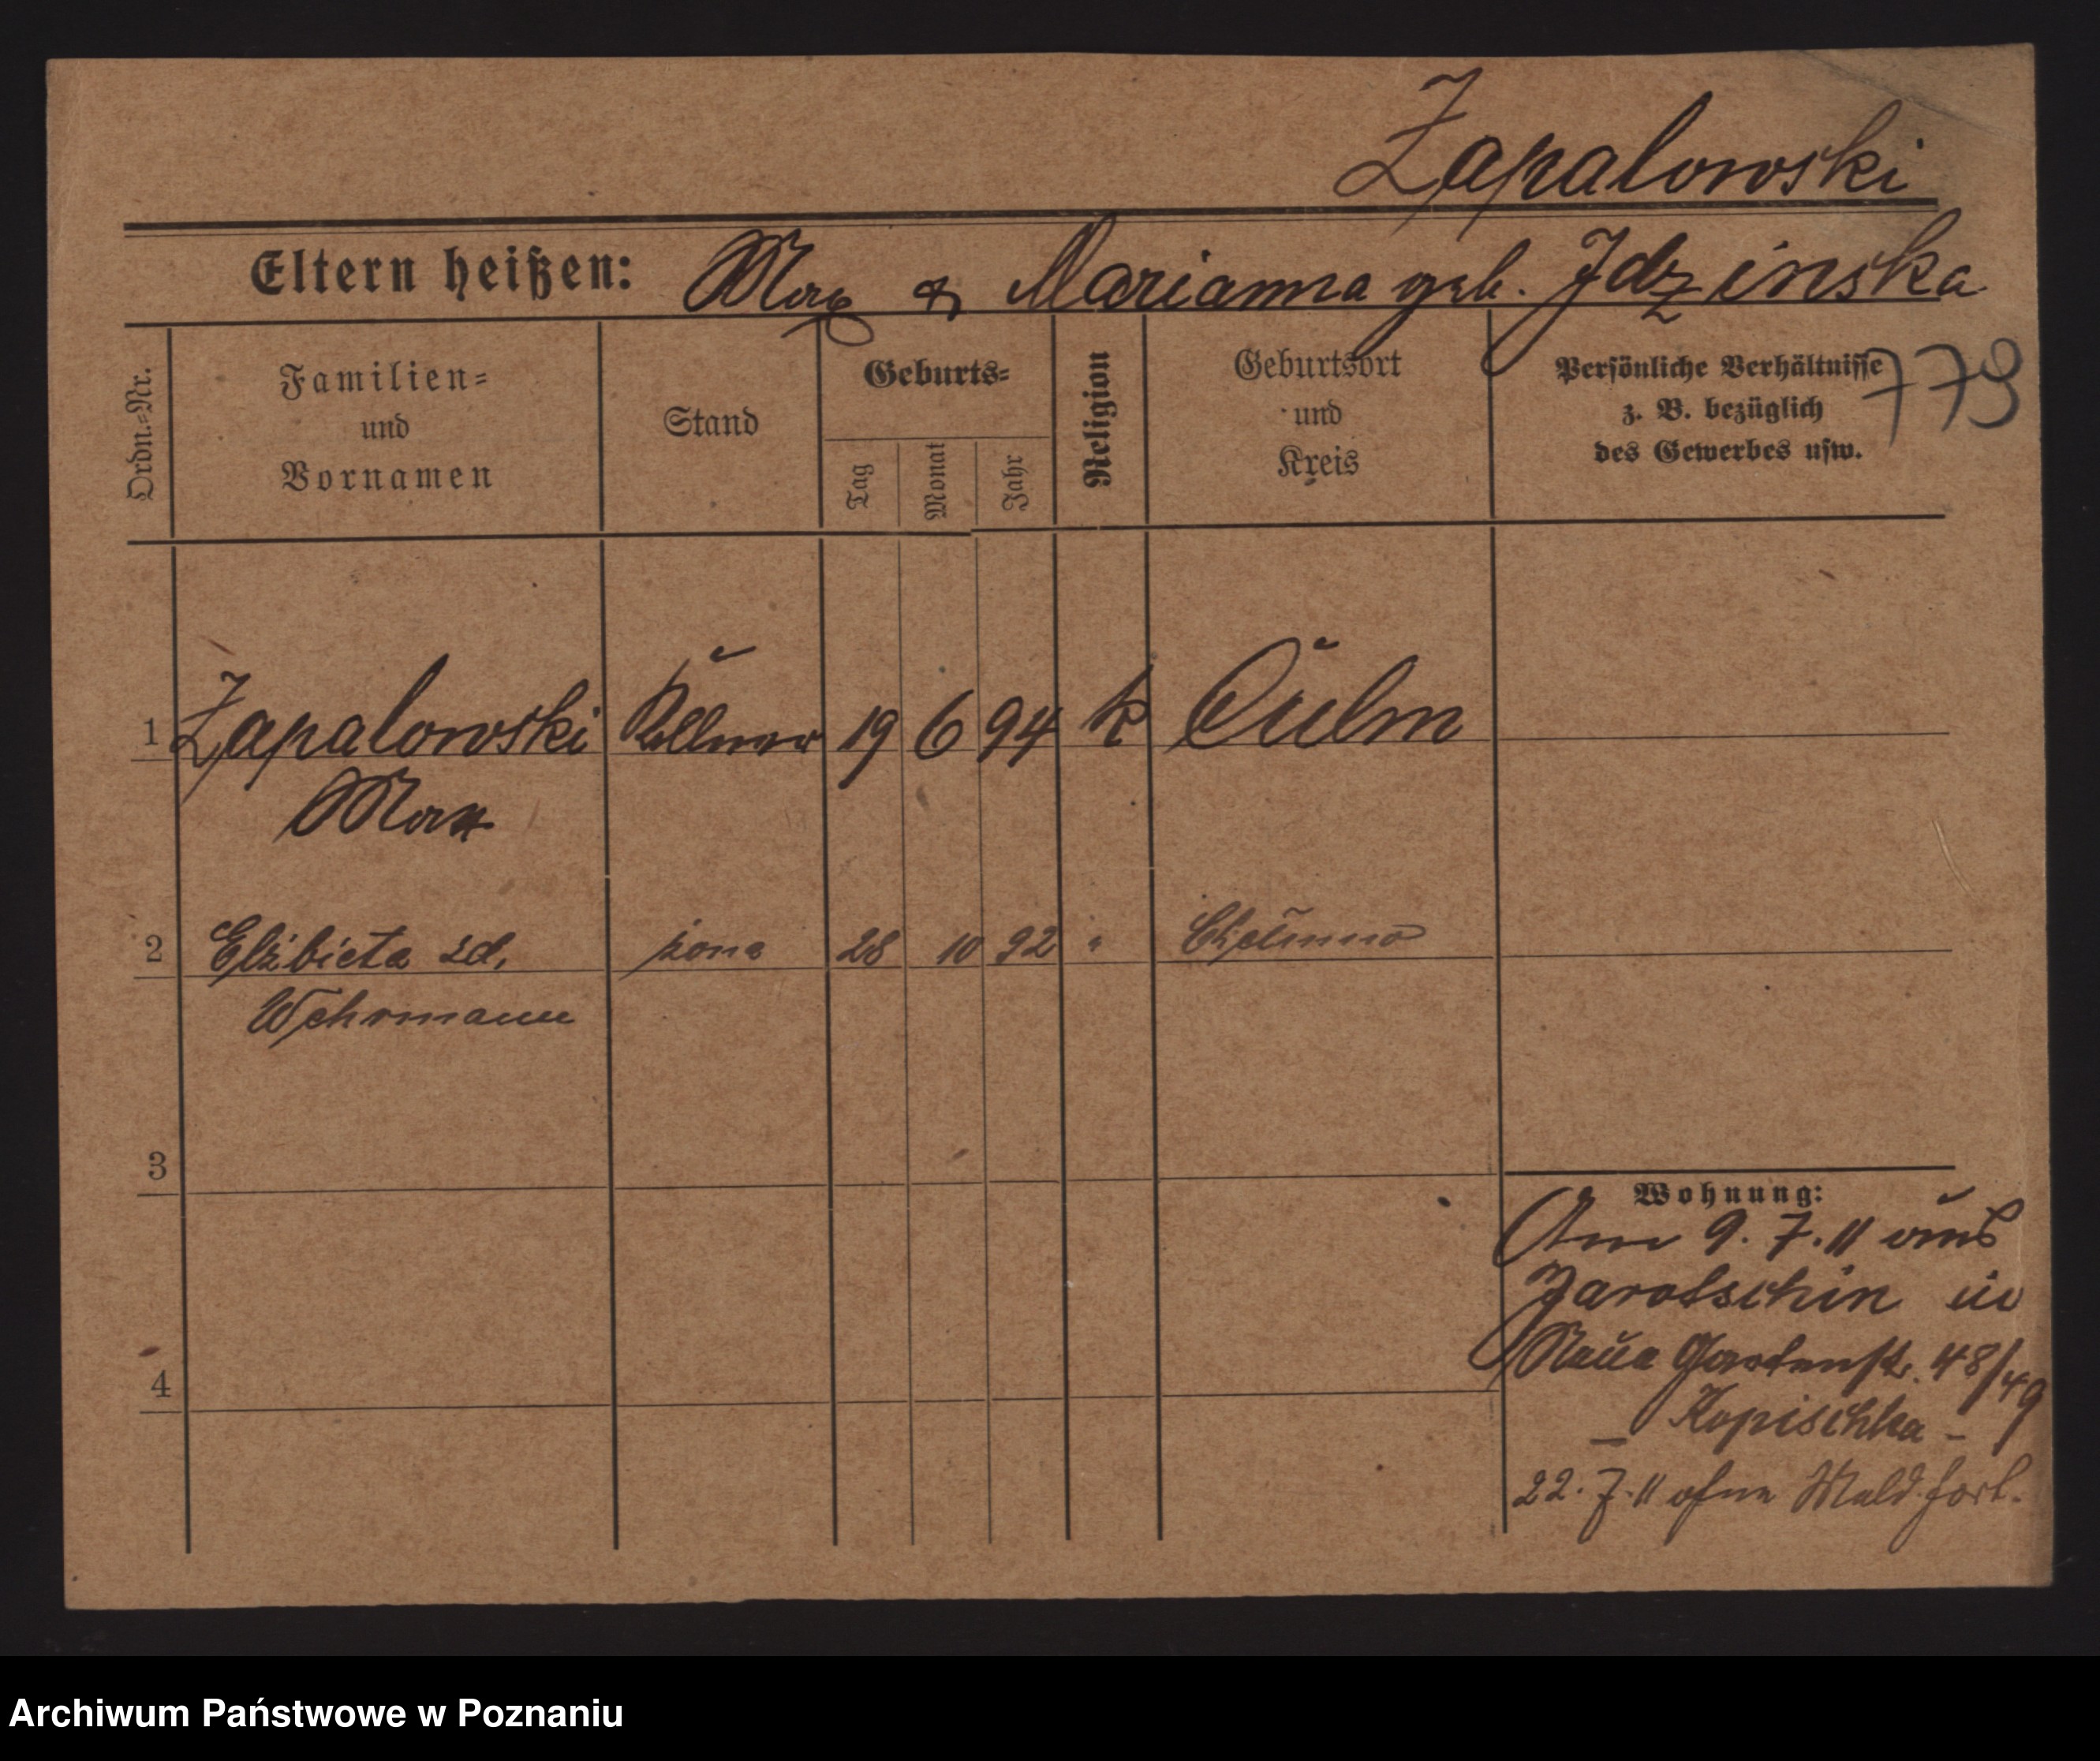 Zapalowski
Eltern heißen: Max & Marianna geb. Idzinska
779
Ordn.-Nr.
Familien-
und
Vornamen
Stand
Geburts-
Tag
Monat
Jahr
Religion
Geburtsort
und
Kreis
Persönliche Verhältnisse
z. B. bezüglich
des Gewerbes usw.
1 Zapalowski Kellner 19 6 94 k Culm
Max
2 Elżbieta zd. żona 28 10 92 " Chełmno
Wehrmann
3
4
Wohnung:
Am 9. 7. 11 aus
Jarotschin in
Neue Gartenstr. 48/49
– Kopischka –
22. 7. 11 ohne Meld. fort.
Archiwum Państwowe w Poznaniu